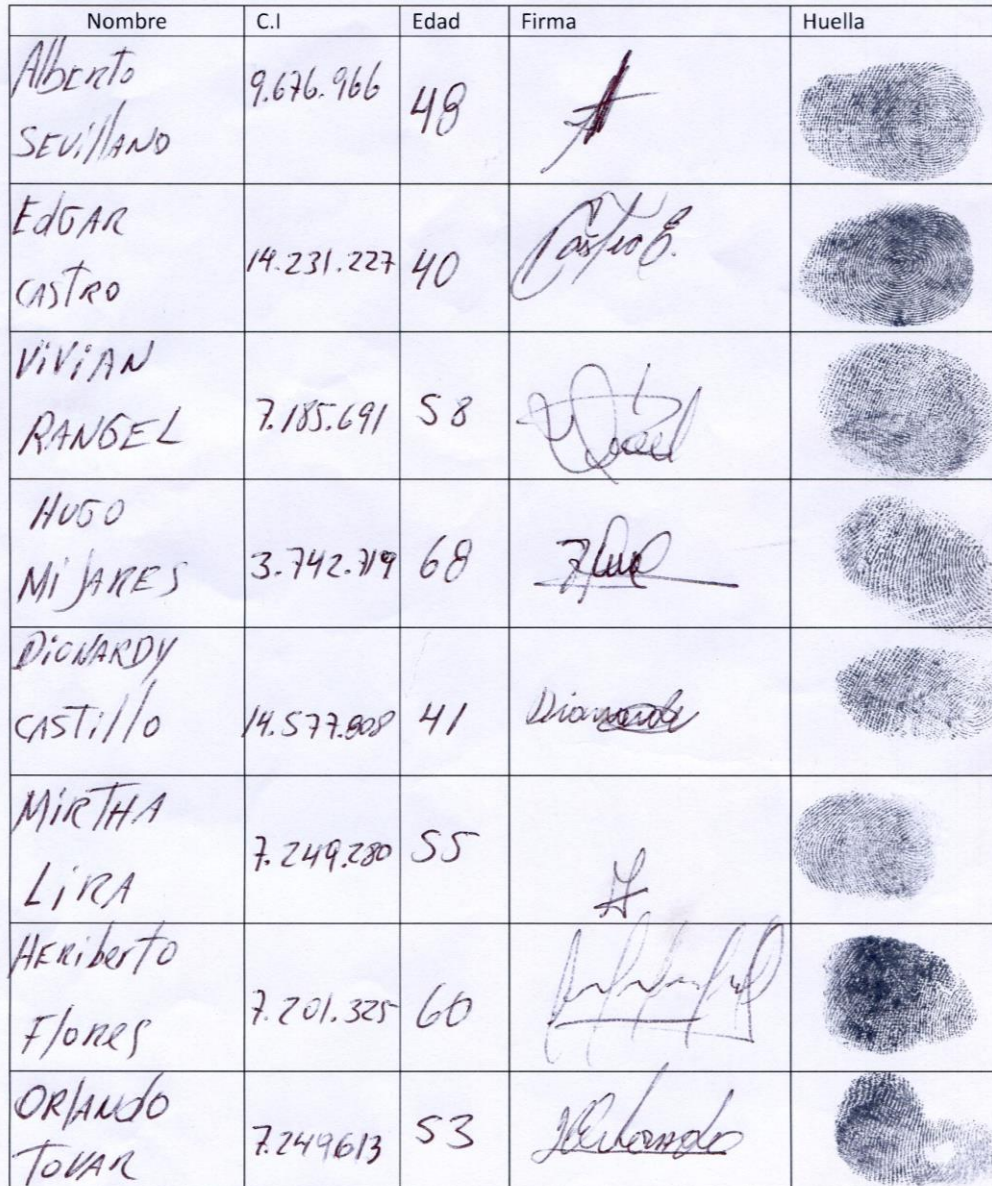 Nombre C.I Edad Firma Huella
Alberto
SEVillANO 9.676.966 48
EdGAR
CASTRO 14.231.227 40 Castro E.
ViViAN
RANGEL 7.185.691 58
HUGO
MiJARES 3.742.719 68
DiONARDY
CASTillo 14.577.808 41
MiRTHA
LiRA 7.249.280 55
HERiberto
Flores 7.201.325 60
ORlANdO
TOVAR 7.249613 53